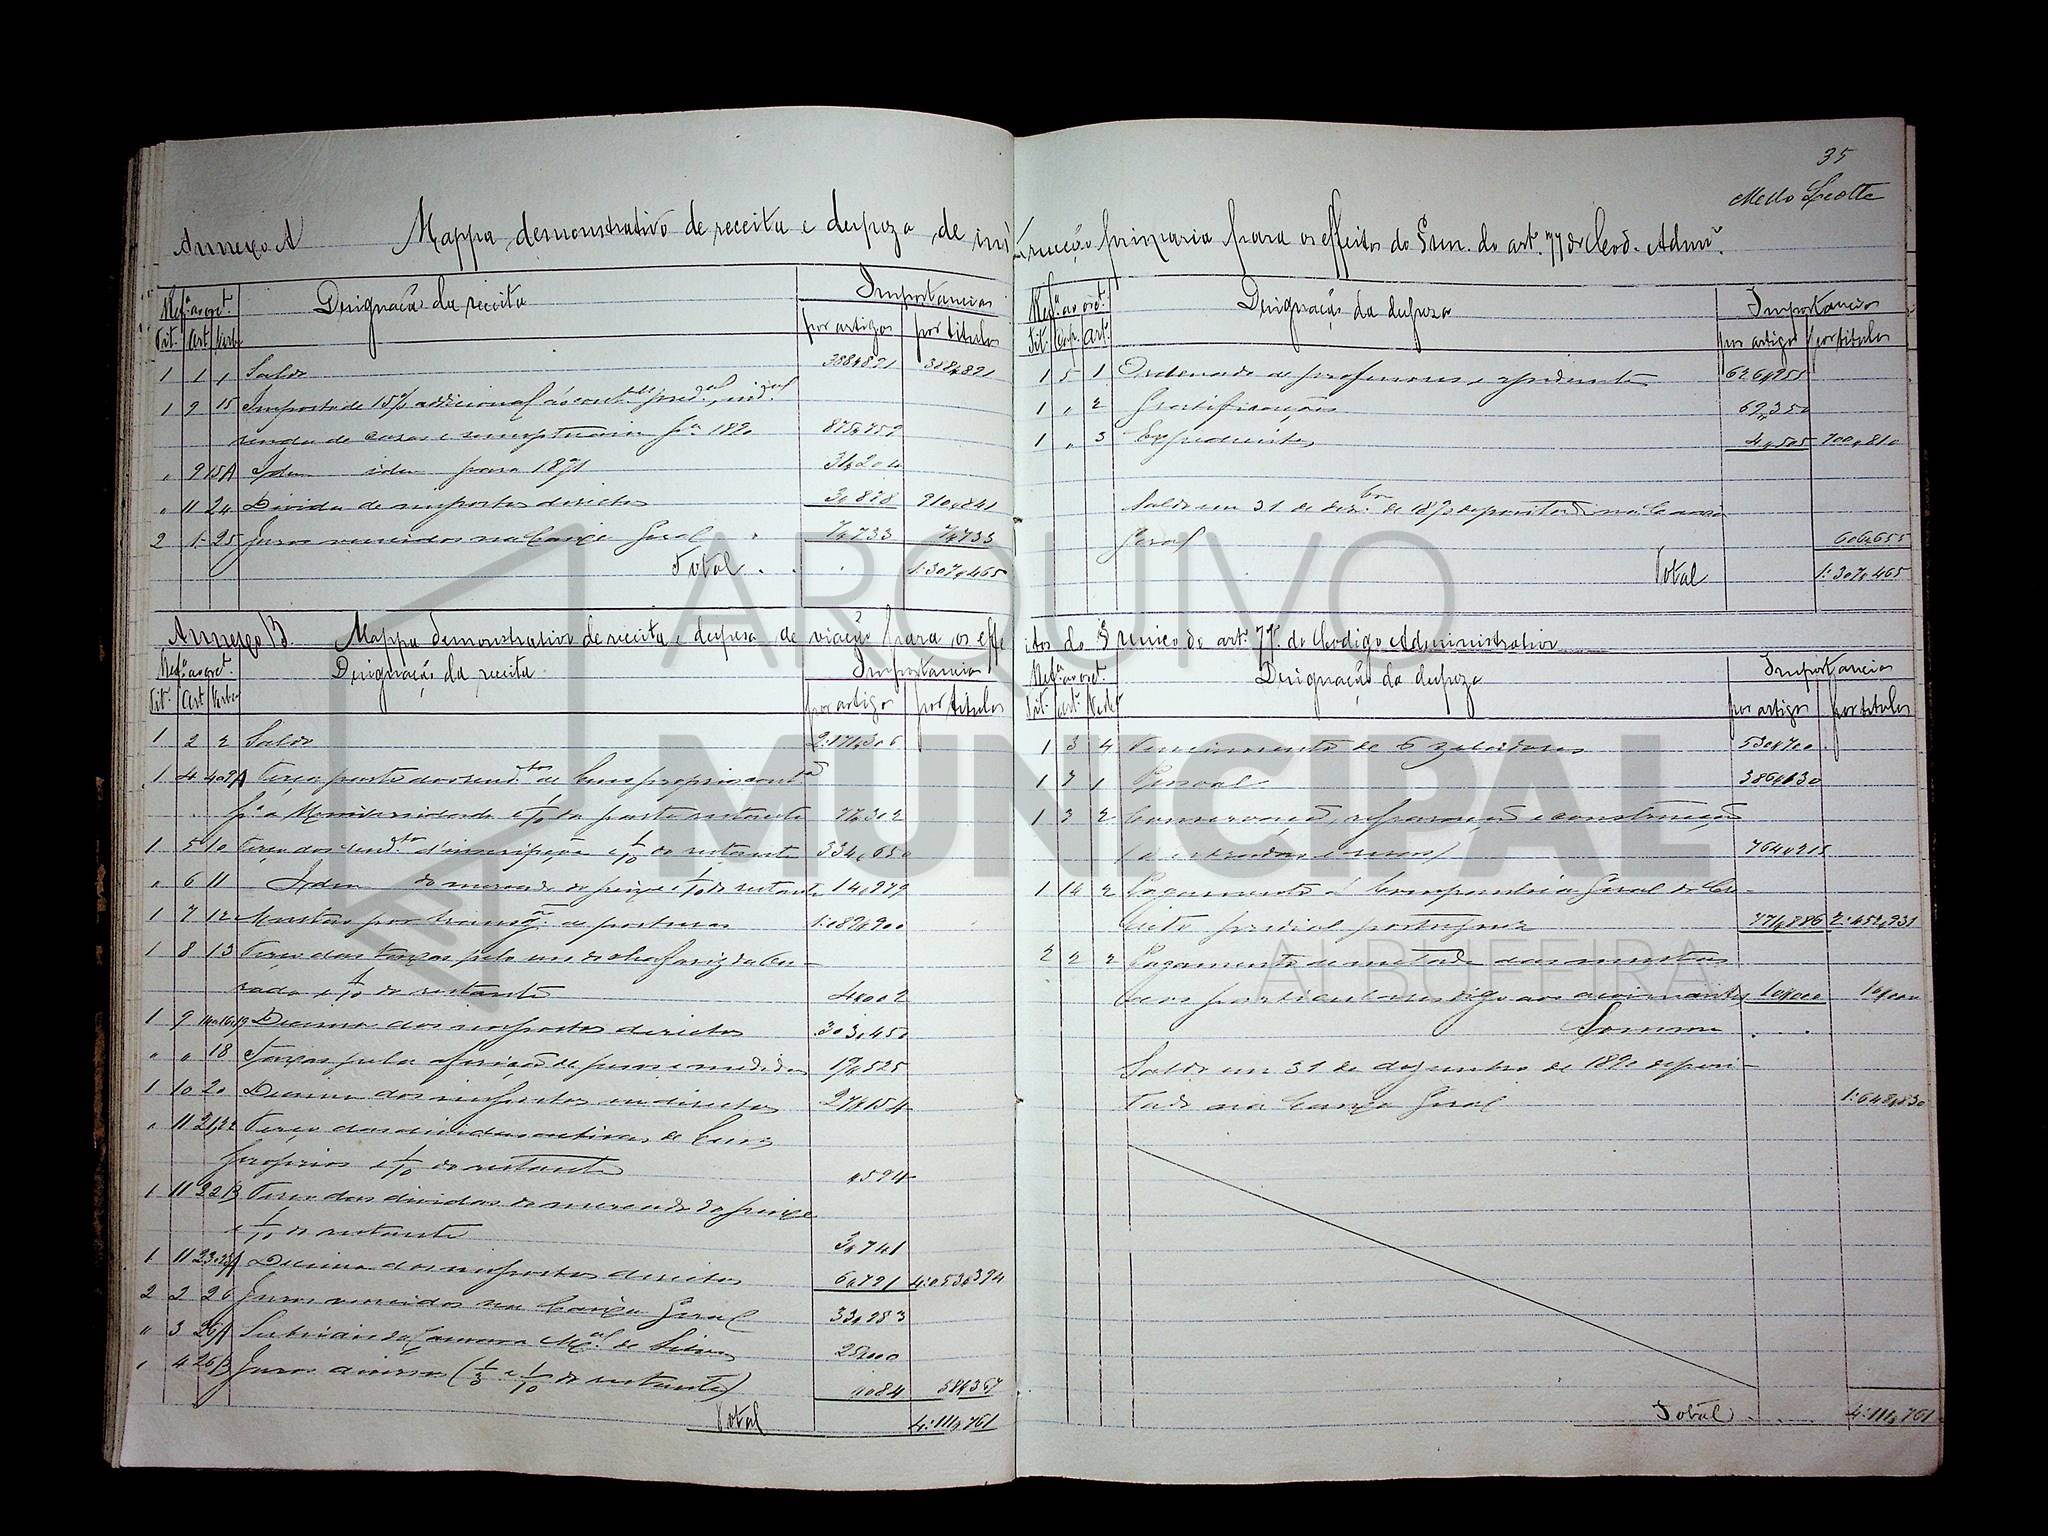 35
Mello Leotte
Annexo A Mappa demonstrativo de receita e despeza de ins
trucção primaria para os effeitos do § un. do art.º 77 do Cod. Admin.
Ref.ª ao orç.t Designação da receita Importancias
Tit. Art. Verba por artigos por titulos
1 1 1 Saldo 388,891 388,891
1 9 15 Imposto de 15% addicional ás
renda de casas e sumptuaria p.ª 1890 875,759
" 9 15A Idem idem para 1891
" 11 24 Divida de impostos directos 910,841
2 1 25 Juros vencidos na Caixa Geral 7,733 7,733
Total 1:307,465
Ref.ª ao orç.t Designação da despeza Importancias
Tit. Cap. Art. por artigos por titulos
1 5 1 Ordenado de professores e ajudantes 626,955
1 " 2 Gratificações 69,350
1 " 3 Expediente 4,505 700,810
Saldo em 31 de dez.bro de 1890 depositado na Caixa
Geral 606,655
Total 1:307,465
Annexo B. Mappa demonstrativo de receita e despesa de viação para os effe
itos do § unico do art.º 77.º do Codigo Administrativo
Ref.ª ao orç.t Designação da receita Importancias
Tit. Art. Verba por artigo por titulos
1 2 2 Saldo 2:171,306
1 4 4 a 9A Terça parte dos rend.tos de bens proprios
p.ª a Misericordia e 1/10 da parte restante 77,302
1 5 10 Terço dos rend.tos d'inscripções e 1/10 do restante 334,650
" 6 11 Idem do mercado do peixe e 1/10 do restante 14,979
1 7 12 Multas por transg.ão de posturas
1 8 13 Terço das taxas pelo uso do chafariz da Or-
rada e 1/10 do restante 4,002
1 9 14 a 16, 19 Decima dos impostos directos 303,450
" " 18 Taxas pela aferição de pesos e medidas 19,525
1 10 20 Decima dos impostos indirectos 27,154
" 11 21, 22 Terço das dividas activas de bens
proprios e 1/10 do restante ,594
1 11 22B Terço das dividas do mercado do peixe
e 1/10 do restante 3,741
1 11 23 a 23A Decima dos impostos directos 6,791 4:053,394
2 2 26 Juros vencidos na Caixa Geral 33,283
" 3 26A Subsidio da Camara M.al de Silves 25,000
" 4 26B Juros diversos (1/3 e 1/10 do restante) ,084 58,367
Total 4:111,761
Ref.ª ao orç.t Designação da despeza Importancias
Tit. Art. Verba por artigos por titulos
1 3 4 Vencimento de 6 zeladores 530,700
1 7 1 Pessoal 386,130
1 3 2 Conservação, reparação e construcção
(de estradas e ruas) 764,215
1 14 2 Pagamento á Companhia Geral do Cre-
dito predial portuguez 771,886 2:452,931
2 2 2 Pagamento de metade das multas
aos particulares digo aos acoimantes 10,000 10,000
Somma
Saldo em 31 de dezembro de 1890 deposi-
tado na Caixa Geral 1:648,830
Total 4:111,761
ARQUIVO
MUNICIPAL
ALBUFEIRA